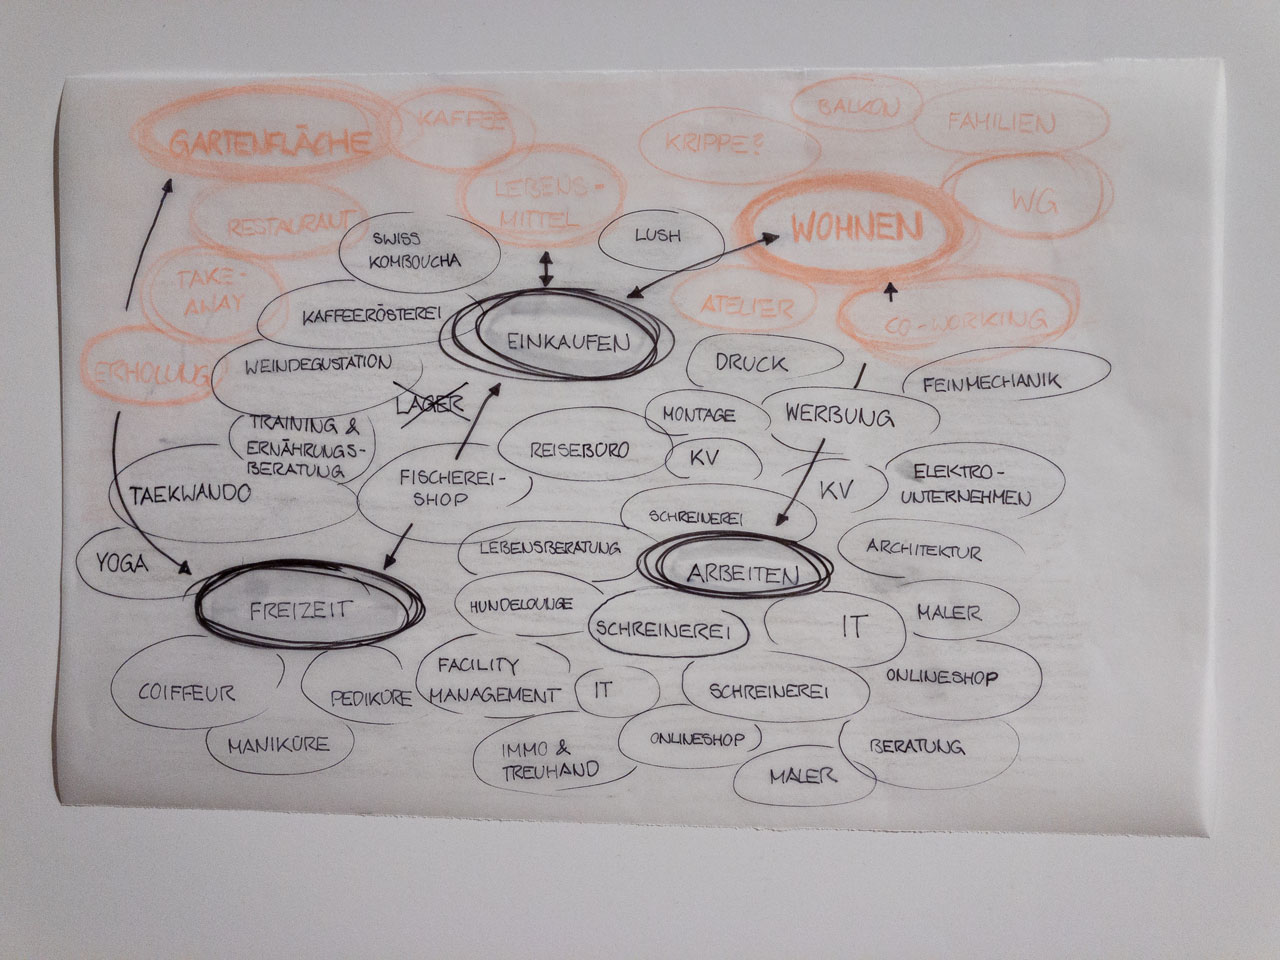 GARTENFLÄCHE
KAFFEE
BALKON
FAMILIEN
KRIPPE?
LEBENS-
MITTEL
WG
RESTAURANT
WOHNEN
SWISS
KOMBOUCHA
LUSH
TAKE-
AWAY
ATELIER
CO-WORKING
KAFFEERÖSTEREI
EINKAUFEN
ERHOLUNG
WEINDEGUSTATION
DRUCK
FEINMECHANIK
LAGER
MONTAGE
WERBUNG
TRAINING &
ERNÄHRUNGS-
BERATUNG
REISEBÜRO
KV
KV
ELEKTRO-
UNTERNEHMEN
TAEKWANDO
FISCHEREI-
SHOP
SCHREINEREI
YOGA
LEBENSBERATUNG
ARBEITEN
ARCHITEKTUR
FREIZEIT
HUNDELOUNGE
SCHREINEREI
IT
MALER
COIFFEUR
PEDIKÜRE
FACILITY
MANAGEMENT
IT
SCHREINEREI
ONLINESHOP
MANIKÜRE
IMMO &
TREUHAND
ONLINESHOP
BERATUNG
MALER